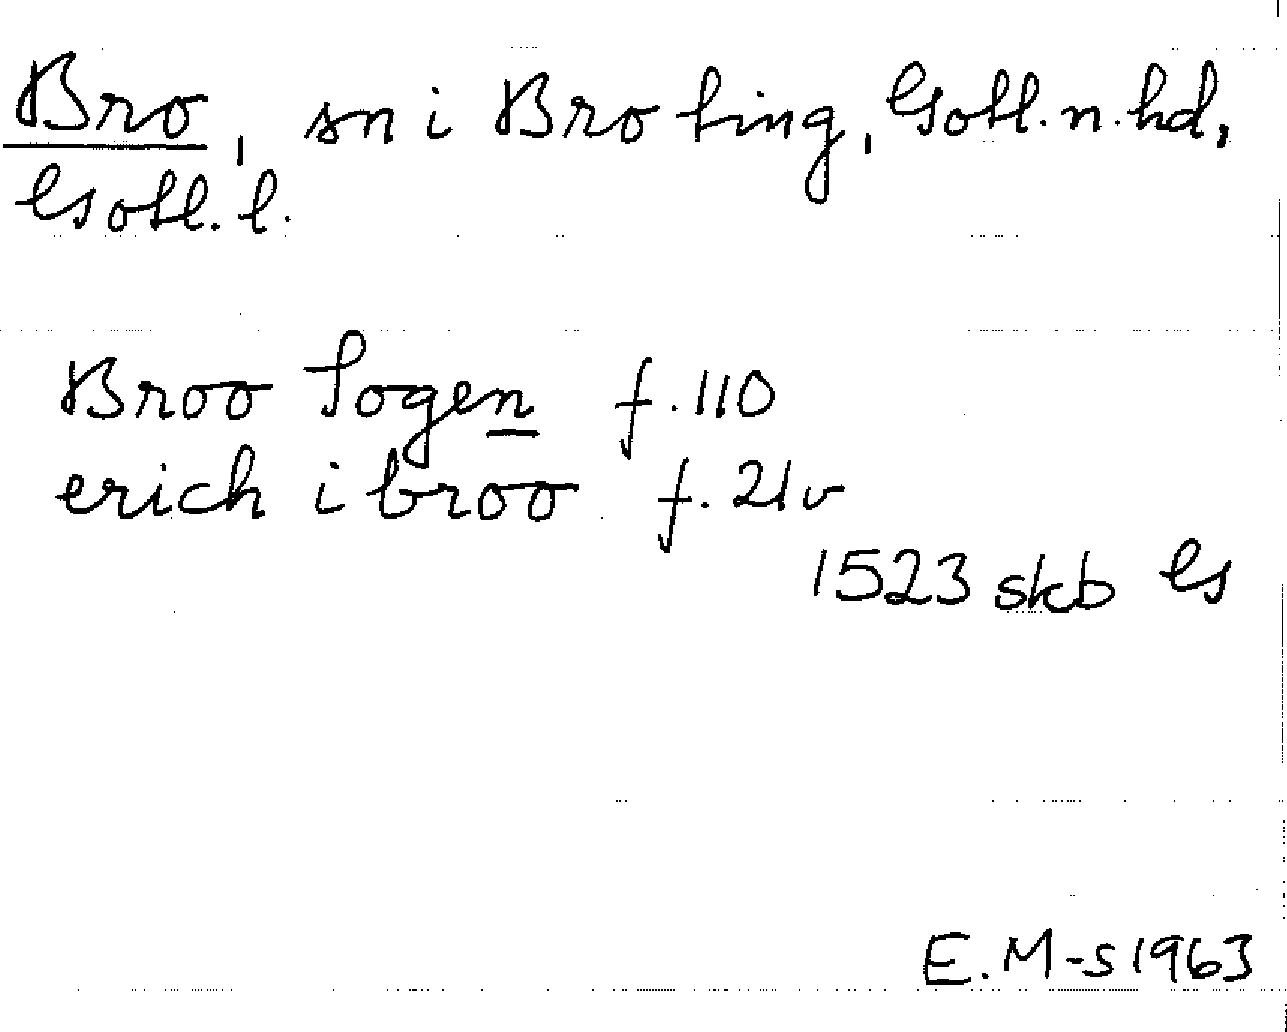 Bro, sn i Bro ting, Gotl. n. hd,
Gotl. l.
Broo Sogen f. 110
erich i broo f. 21v
1523 skb G
E. M-s 1963